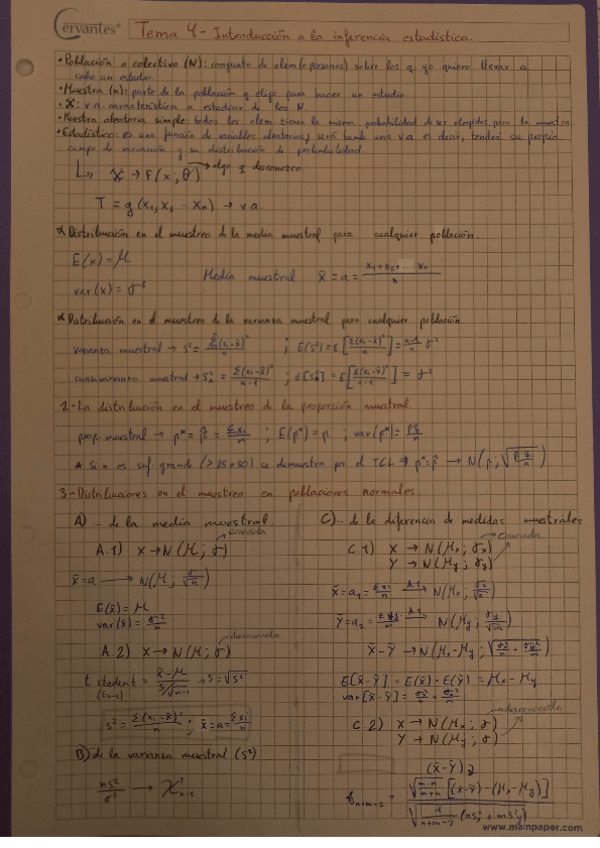 Cervantes®
Tema 4 - Introducción a la inferencia estadística.
• Población o colectivo (N): conjunto de elem (o personas) sobre los q yo quiero llevar a
cabo un estudio.
• Muestra (n): parte de la población q elijo para hacer un estudio
• X: v.a característica a estudiar de los N.
• Muestra aleatoria simple: todos los elem tienen la misma probabilidad de ser elegidos para la muestra.
• Estadístico: es una función de variables aleatorias, será tamb una v.a es decir, tendrá su propio
campo de variación y su distribución de probabilidad.
↳ X → F(x, θ) → algo q desconozco
T = g(x₁, x₂ - xₙ) → va
* Distribución en el muestreo de la media muestral para cualquier población.
E(x) = μ
Media muestral x̄ = a = (x₁+x₂+...xₙ)/n
var(x) = σ²
* Distribución en el muestreo de la varianza muestral para cualquier población
varianza muestral → s² = Σ(xi-x̄)²/n ; E(s²) = E[Σ(xi-x̄)²/n] = (n-1)/n σ²
cuasivarianza muestral → = Σ(xi-x̄)²/(n-1) ; = E[Σ(xi-x̄)²/(n-1)] = σ²
2.- La distribución en el muestreo de la proporción muestral
prop. muestral → p* = p̂ = Σxi/n ; E(p*) = p ; var(p*) = pq/n
* Si n es suf. grande (>25 o 30) se demuestra por el TCL ⇒ p* = p̂ → N(p; √(pq/n))
3.- Distribuciones en el muestreo en poblaciones normales.
A) .. de la media muestral
A.1) X → N(μ; σ) conocida
x̄ = a → N(μ; σ/√n)
E(x̄) = μ
var(x̄) = σ²/n
A.2) X → N(μ; σ) desconocida
t student (tₙ₋₁) = (x̄-μ)/(s/√(n-1)) → s = √s²
s² = Σ(xi-x̄)²/n ; x̄ = a = Σxi/n
B) de la varianza muestral (s²)
ns²/σ² → χ²ₙ₋₁
C) .. de la diferencia de medidas muestrales
C.1) X → N(μₓ; σₓ) conocida
Y → N(μᵧ; σᵧ)
x̄ = a₁ = Σxi/n A.1→ N(μₓ; σₓ/√n)
ȳ = a₂ = Σyi/m A.1→ N(μᵧ; σᵧ/√m)
x̄-ȳ → N(μₓ-μᵧ; √(σₓ²/n + σᵧ²/m))
E[x̄-ȳ] = E(x̄) - E(ȳ) = μₓ-μᵧ
var[x̄-ȳ] = σₓ²/n + σᵧ²/m
C.2) X → N(μₓ; σ) desconocida
Y → N(μᵧ; σ)
(x̄-ȳ)
tₙ₊ₘ₋₂ = √(m·n/(m+n)) [(x̄-ȳ)-(μₓ-μᵧ)] / √(1/(n+m-2) (ns²ₓ + ms²ᵧ))
www.mainpaper.com